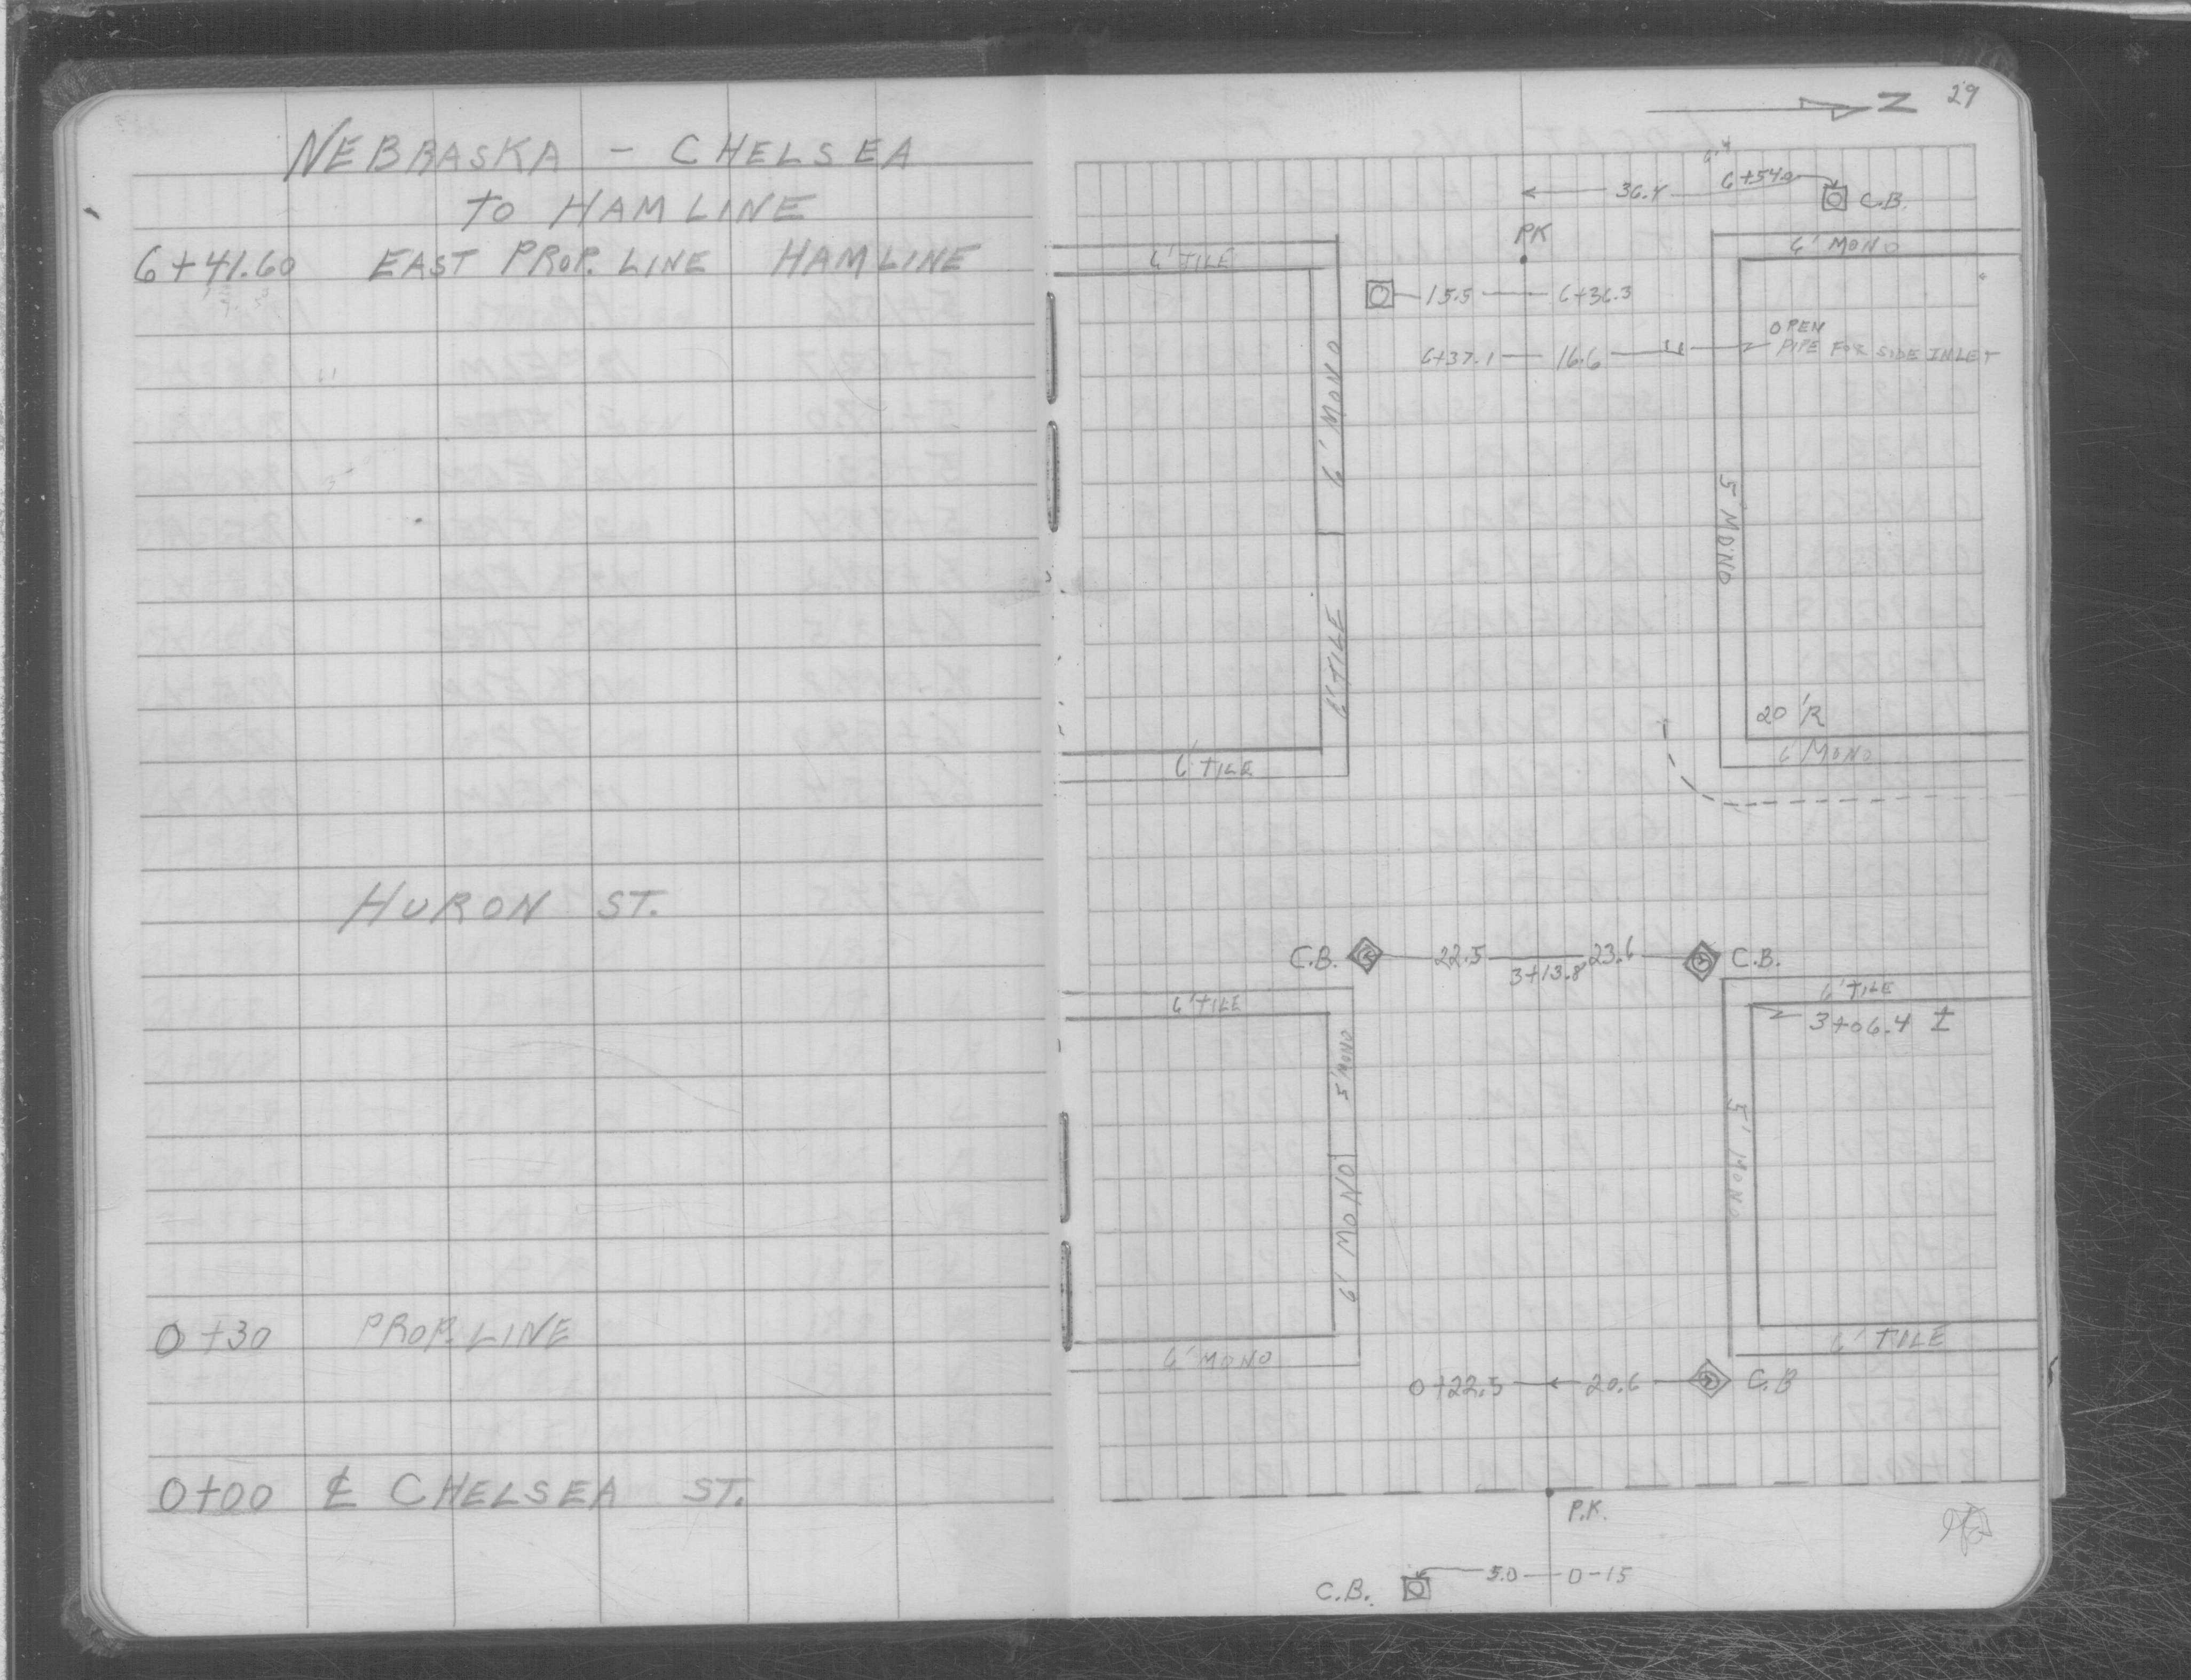 NEBRASKA - CHELSEA
TO HAMLINE
6+41.60 EAST PROP. LINE HAMLINE
HURON ST.
0+30 PROP. LINE
0+00 ℄ CHELSEA ST.
N 29
36.4 6+54.0 C.B.
PK
6' TILE
6' MONO
15.5 6+36.3
OPEN
6+37.1 16.6 PIPE FOR SIDE INLET
6' MONO
5' MONO
6' TILE
20'R
6' TILE
6' MONO
C.B. 22.5 3+13.8 23.6 C.B.
6' TILE
6' TILE
3+06.4 ±
5' MONO
5' MONO
6' MONO
6' TILE
6' MONO
0+22.5 20.6 C.B
P.K.
C.B. 5.0 0-15